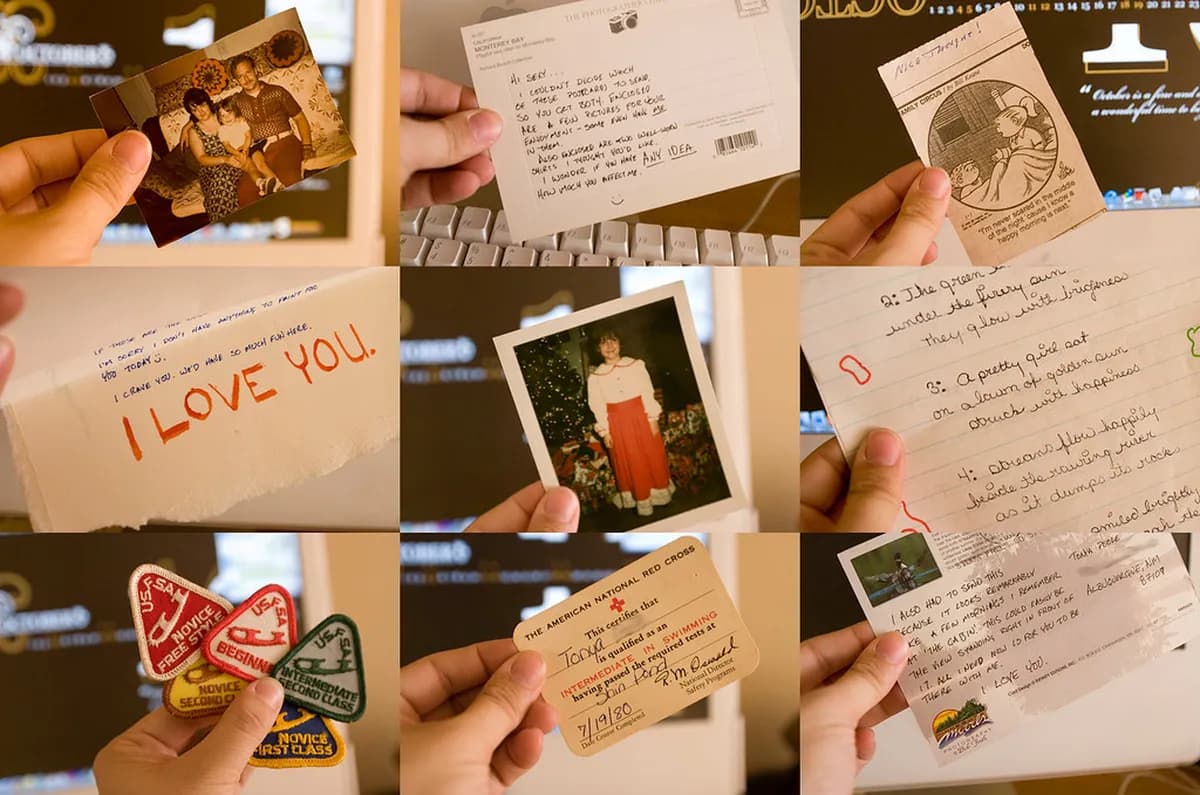 OCTOBER
THE PHOTOGRAPHER'S
CALIFORNIA
MONTEREY BAY
HI SEXY...
I COULDN'T DECIDE WHICH
OF THESE POSTCARDS TO SEND,
SO YOU GET BOTH. ENCLOSED
ARE A FEW PICTURES FOR YOUR
ENJOYMENT - SOME EVEN HAVE ME
IN THEM.
ALSO ENCLOSED ARE TWO WELL-WORN
SHIRTS I THOUGHT YOU'D LIKE.
I WONDER IF YOU HAVE ANY IDEA
HOW MUCH YOU AFFECT ME.
1 2 3 4 5 6 7 8 9 10 11 12 13 14 15 16 17 18 19 20 21 22
NICE THOUGHT!
FAMILY CIRCUS / By Bil Keane
"I'm never scared in the middle
of the night 'cause I know a
happy morning is next."
"October is a fine and
wonderful time to
IF THESE ARE THE
I'M SORRY I DON'T HAVE ANYTHING TO PAINT FOR
YOU TODAY :).
I CRAVE YOU. WE'D HAVE SO MUCH FUN HERE.
I LOVE YOU.
2: The green
under the firery sun
they glow with brigness
3: A pretty girl sat
on a lawn of golden sun
struck with happiness
4: streams flow happily
beside the rawring river
as it dumps its rocks
smiled brightly
U.S.F.S.A.
NOVICE
FREE STYLE
USFSA
BEGINNE
USFSA
INTERMEDIATE
SECOND CLASS
NOVICE
SECOND CL
NOVICE
FIRST CLASS
THE AMERICAN NATIONAL RED CROSS
This certifies that
Tonya
is qualified as an
INTERMEDIATE IN SWIMMING
having passed the required tests at
Pond
7/19/80
Date Course Completed
National Director
Safety Programs
I ALSO HAD TO SEND THIS
BECAUSE IT LOOKS REMARKABLY
LIKE A FEW MORNINGS I REMEMBER
AT THE CABIN. THIS COULD EASILY BE
THE VIEW STANDING RIGHT IN FRONT OF
IT. ALL I NEED NOW IS FOR YOU TO BE
THERE WITH ME.
I LOVE YOU.
ALBUQUERQUE, NM
87107
PHOTOGRAPHY